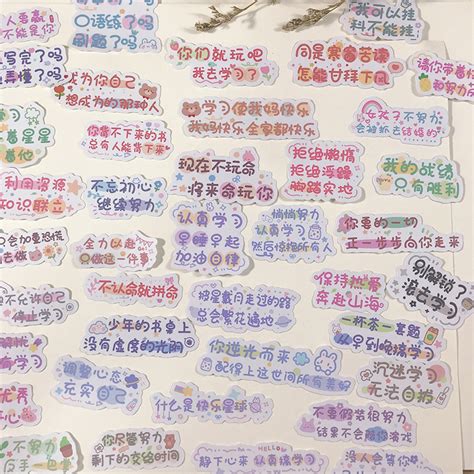 口语练了吗
刷题了吗
我可以挂
科不能挂
不能是你
你们就玩吧
我去学习了
同是寒窗苦读
怎能甘拜下风
写完了吗
弄懂了吗
成为你自己
想成为的那种人
学习使我妈快乐
我妈快乐 全家都快乐
女孩子不努力
会被抓去结婚的
你背不下来的书
总有人能背下来
现在不玩命
将来命玩你
拒绝懒惰
拒绝浮躁
脚踏实地
我的战绩
只有胜利
利用资源
知识联立
不忘初心
继续努力
认真学习
早睡早起
加油自律
悄悄努力
认真学习
然后惊艳所有人
你要的一切
正一步步向你走来
全力以赴
只做这一件事
别解锁了
滚去学习
保持热爱
奔赴山海
不认命就拼命
披星戴月走过的路
总会繁花遍地
停止学习
少年的书桌上
没有虚度的光阴
一杯茶一套题
从早到晚搞学习
你逆光而来
配得上这世间所有美好
调整心态
充实自己
沉迷学习
无法自拔
什么是快乐星球
不要假装很努力
结果不会陪你演戏
你尽管努力
剩下的交给时间
HELLO
静下心来 认真搞学习